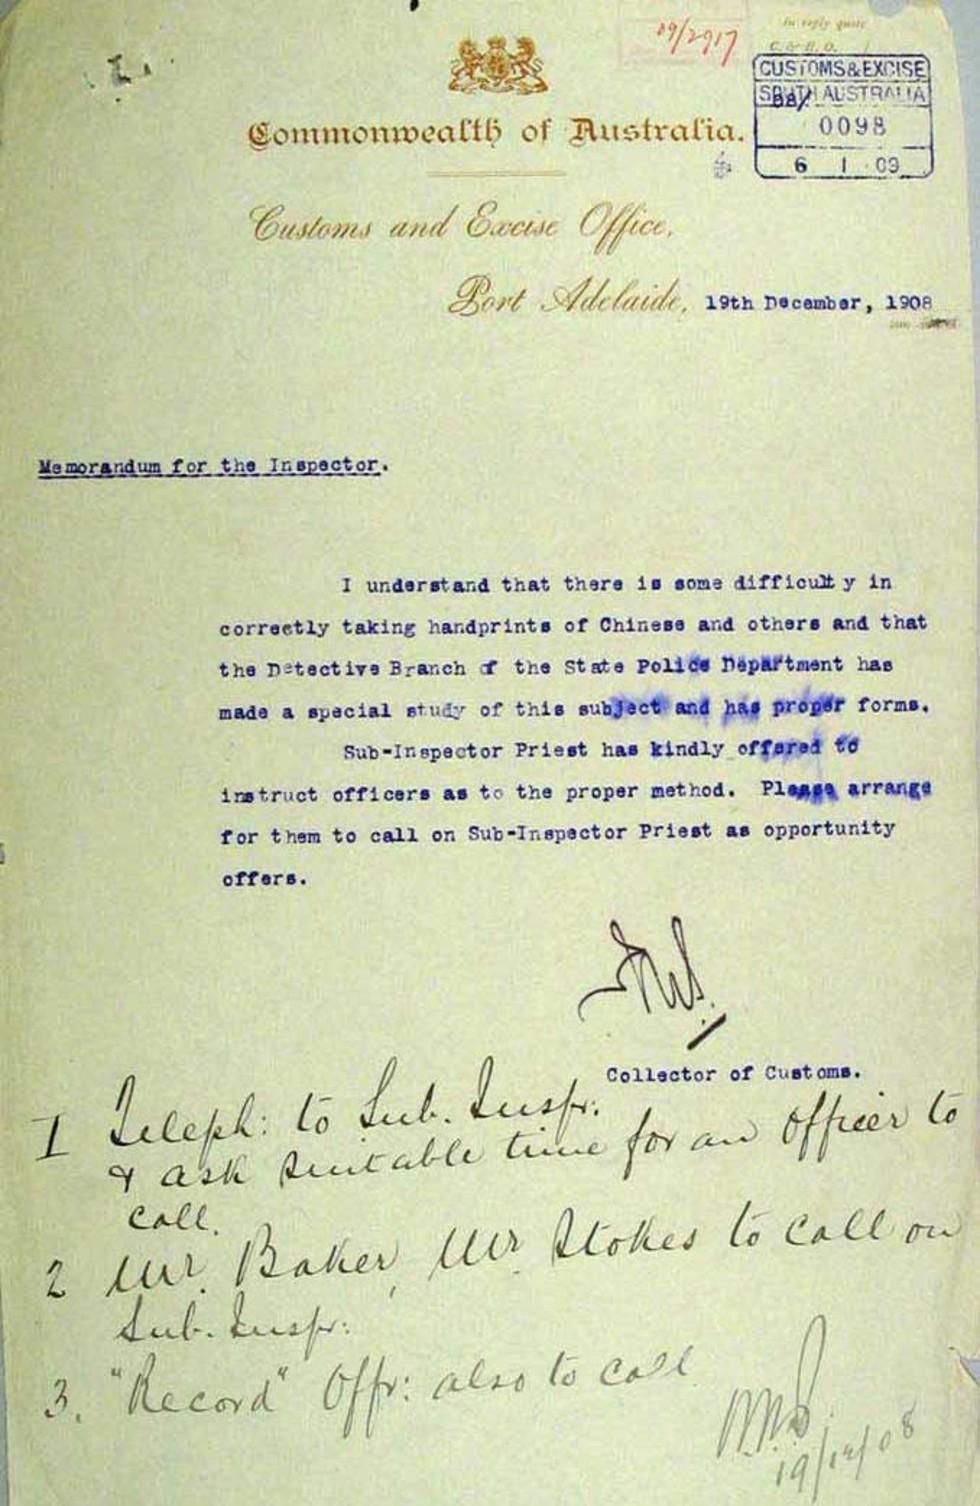 09/2917
In reply quote
C. & H. O.
CUSTOMS & EXCISE
SOUTH AUSTRALIA
0098
6 1 09
Commonwealth of Australia.
Customs and Excise Office,
Port Adelaide, 19th December, 1908
Memorandum for the Inspector.
I understand that there is some difficulty in
correctly taking handprints of Chinese and others and that
the Detective Branch of the State Police Department has
made a special study of this subject and has proper forms.
Sub-Inspector Priest has kindly offered to
instruct officers as to the proper method. Please arrange
for them to call on Sub-Inspector Priest as opportunity
offers.
Collector of Customs.
1 Teleph: to Sub. Inspr.
& ask suitable time for an officer to
call.
2 Mr. Baker, Mr. Stokes to call on
Sub. Inspr:
3. "Record" Offr: also to call
19/12/08